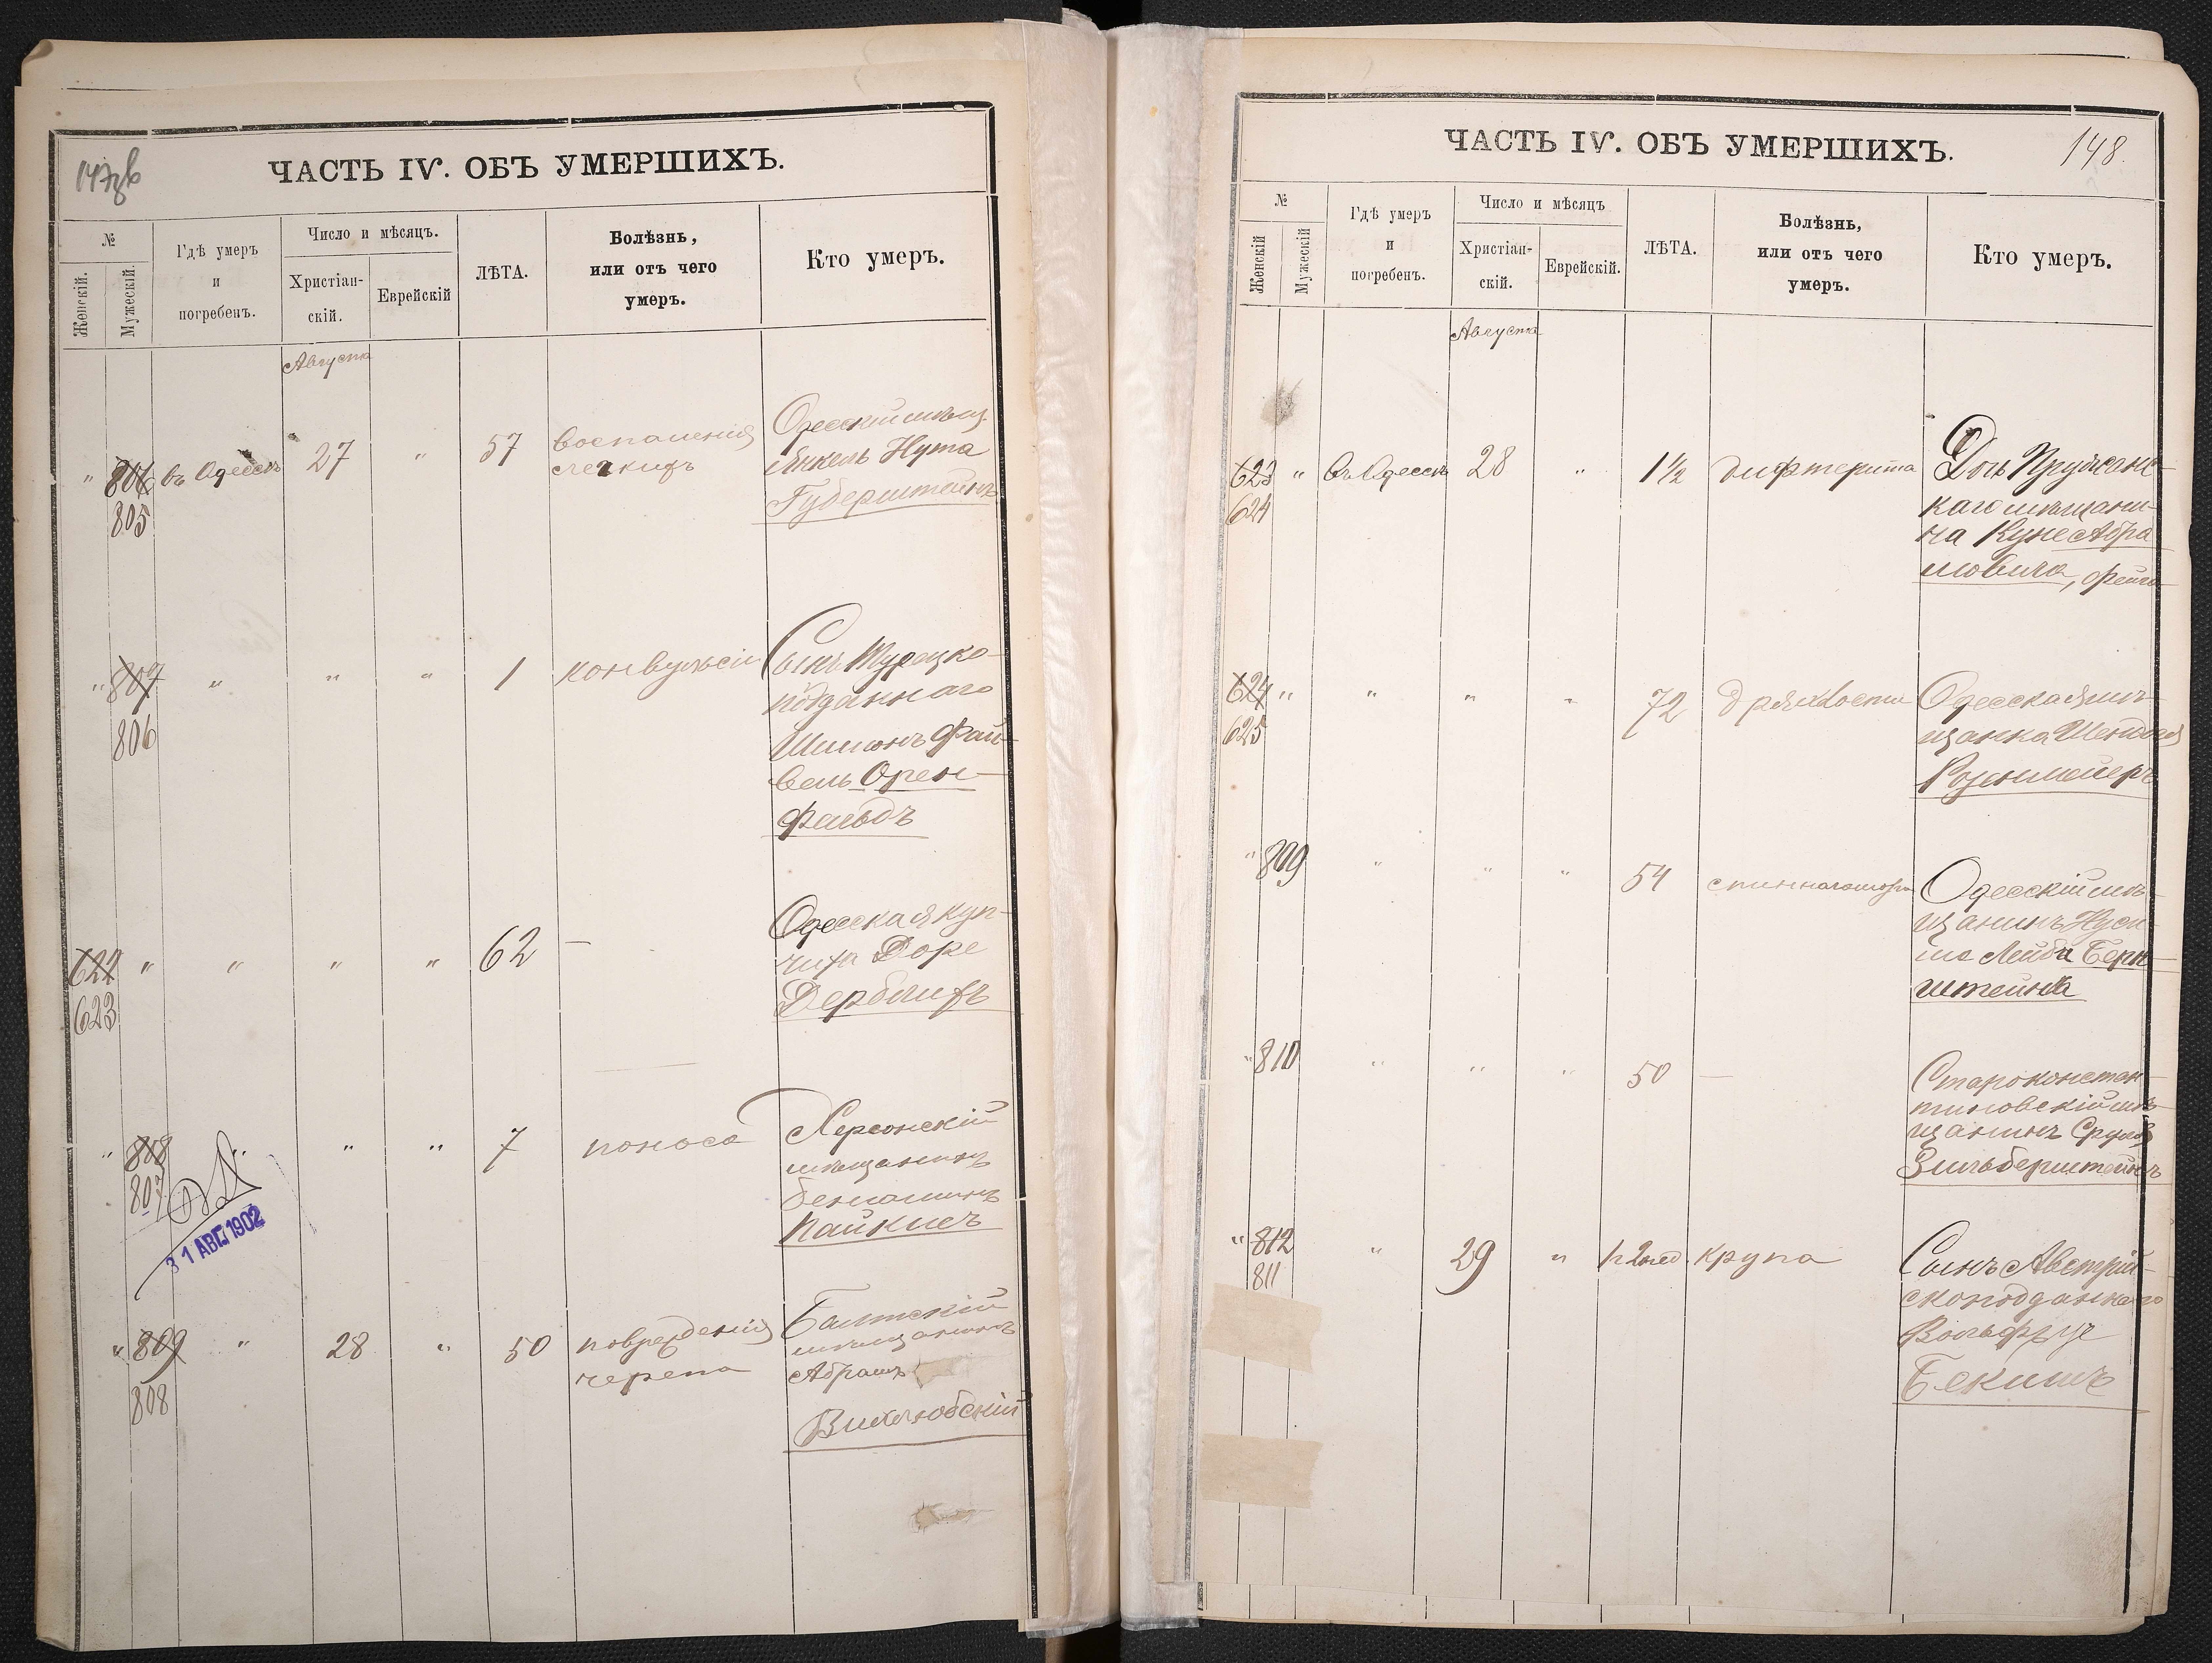 147зв
ЧАСТЬ IV. ОБЪ УМЕРШИХЪ.
№
Женскій.
Мужескій.
Гдѣ умеръ
и
погребенъ.
Число и мѣсяцъ.
Христіан-
скій.
Еврейскій
ЛѢТА.
Болѣзнь,
или отъ чего
умеръ.
Кто умеръ.
Августа
" 806 въ Одессѣ 27 " 57 воспаленія
805
легкихъ
Одесскій мѣщ.
Янкель Нута
Губерштейнъ
" 807 " " " 1 конвульсіи
806
Сынъ Турецко-
подданнаго
Шимонъ Фай-
вель Орен-
фельдъ
622 " " " " 62 —
623
Одесская куп-
чиха Доре
Дерблихъ
" 808 " " " 7 поноса
807
31 АВГ 1902
Херсонскій
мѣщанинъ
Беньаминъ
Пайкисъ
" 809 " 28 " 50 поврежденія
808
черепа
Балтскій
мѣщанинъ
Абрамъ
148.
ЧАСТЬ IV. ОБЪ УМЕРШИХЪ.
№
Женскій
Мужескій
Гдѣ умеръ
и
погребенъ.
Число и мѣсяцъ
Христіан-
скій.
Еврейскій.
ЛѢТА.
Болѣзнь,
или отъ чего
умеръ.
Кто умеръ.
Августа
623 " въ Одессѣ 28 " 1½ дифтерита
624
Дочь Пружанс-
каго мѣщани-
на Куне Абра
мовича, Фейга
624 " " " " 72 дряхлости
625
Одесская мѣ-
щанка Шендля
Розенмейеръ
" 809 " " " 54
Одесскій мѣ-
щанинъ Нуси-
мъ Лейба Берн-
штейнъ
" 810 " " " 50 —
Староконстан-
тиновскій мѣ-
щанинъ Сруль
Зильберштейнъ
" 812 " 29 " крупа
811
Сынъ Австрій-
скоподданнаго
Бекишъ